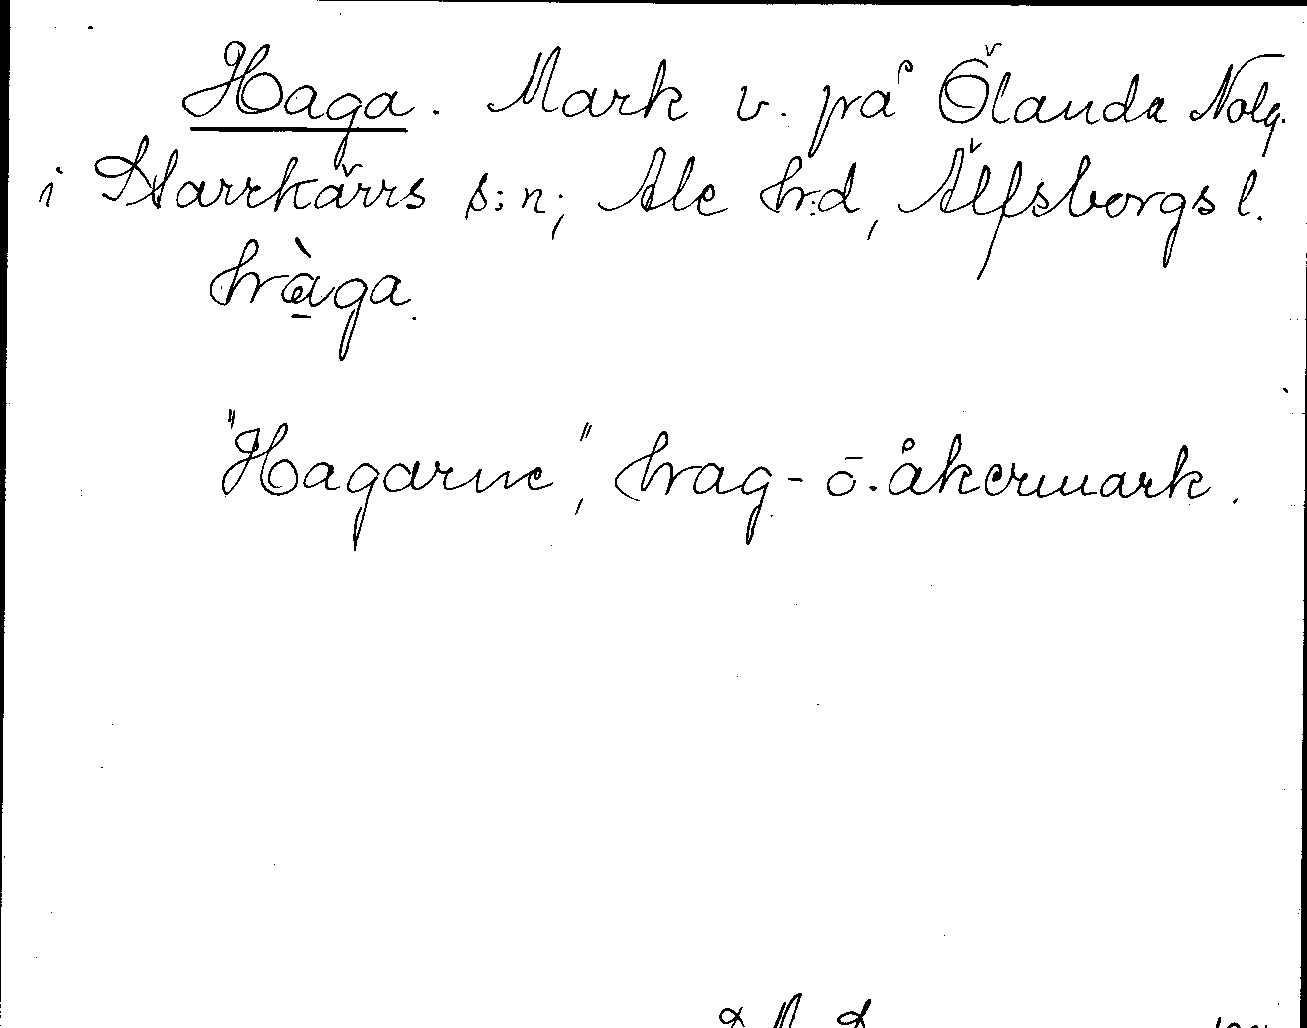 Haga. Mark v. på Ölanda Nolg.
i Starrkärrs s:n; Ale hrd, Älfsborgs l.
hàga.
"Hagarne", hag- ō. åkermark.